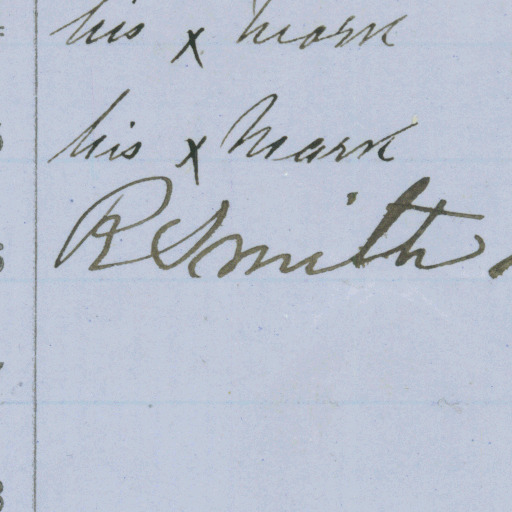 his x mark
his x mark
R Smith